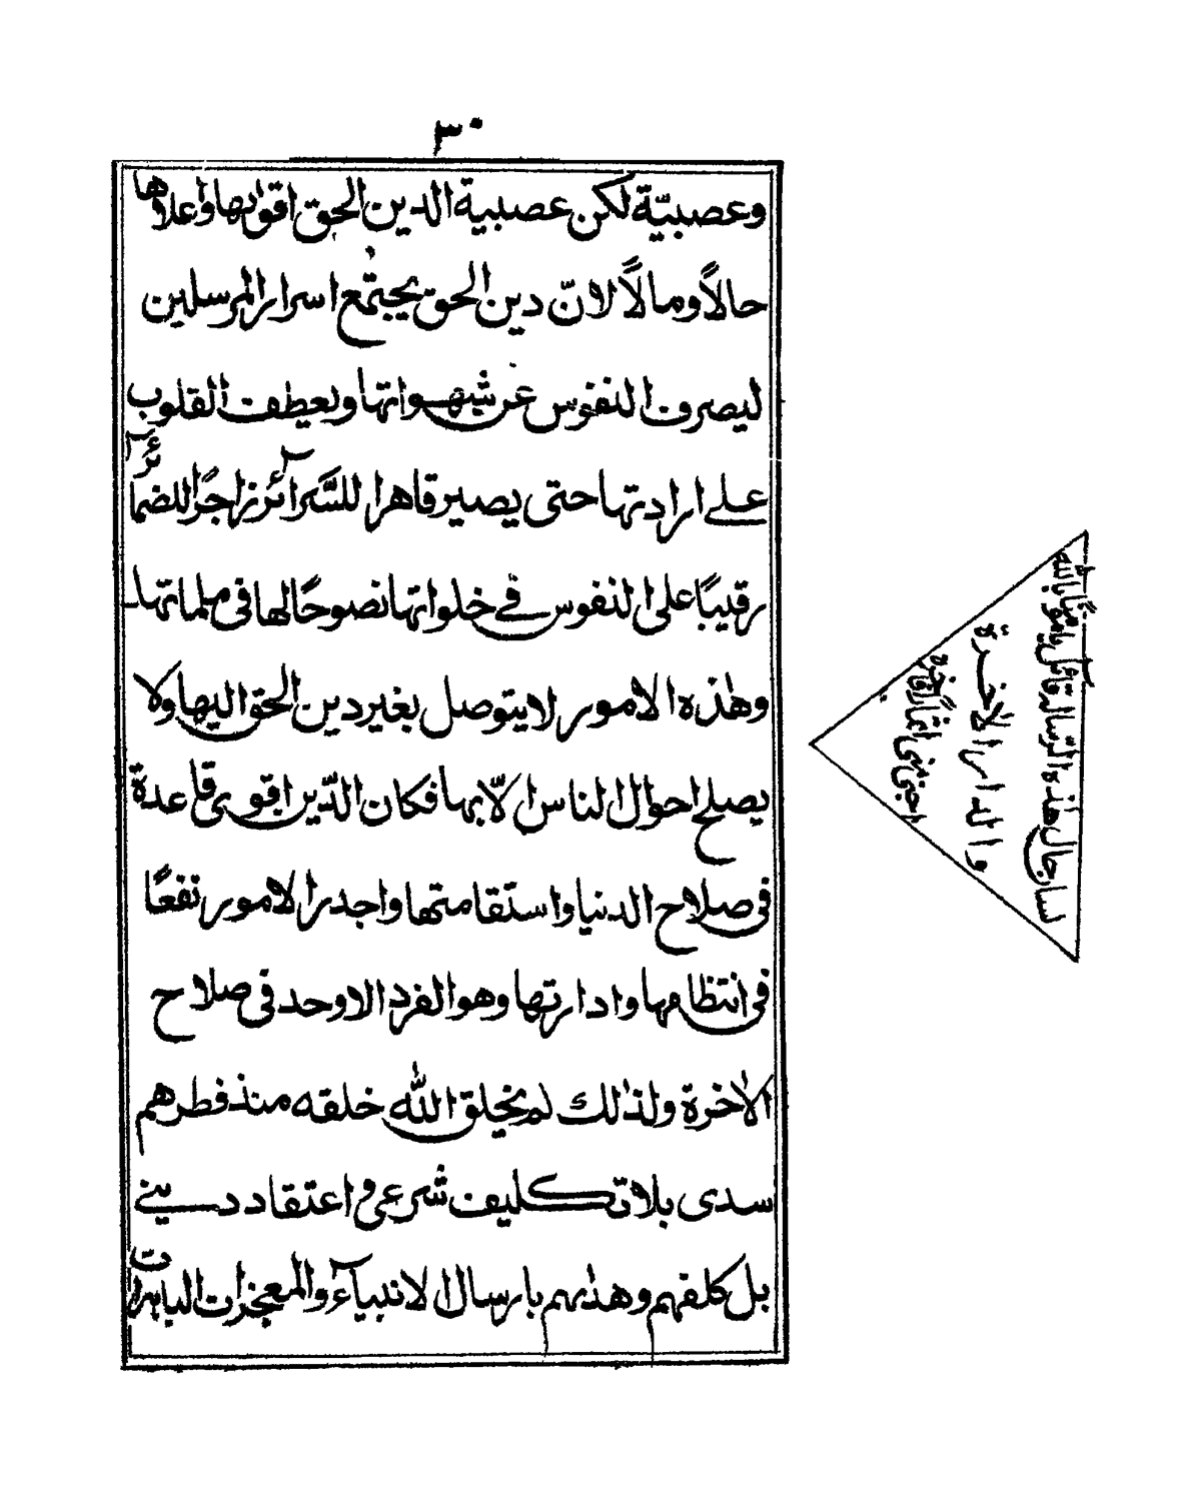 ٣٠
وعصبيّة لكن عصبية الدين الحق اقوٰيها واعلاها
حالاً ومالاً لانّ دين الحق يجتمع اسرار المرسلين
ليصرف النفوس عن شهواتها ويعطف القلوب
على ارادتها حتى يصير قاهرا للسّرآئر زاجرًا للضمآئر
رقيبًا على النفوس في خلواتها نصوحًا لها فى ملماتها
وهٰذه الامور لا يتوصل بغير دين الحق اليها ولا
يصلح احوال الناس الّا بها فكان الدّين اقوى قاعدة
فى صلاح الدنيا واستقامتها واجدر الامور نفعًا
فى انتظامها وادارتها وهو الفرد الاوحد فى صلاح
الاٰخرة ولذٰلك لم يخلق الله خلقه منذ فطرهم
سدى بلا تكليف شرعى و اعتقاد دينے
بل كلفهم وهذٰبهم بارسال الانبيآء والمعجزات الباهرات
لسارجال هٰذه الرسالة قائل يامؤمنًا بالله
والدار الاخرة